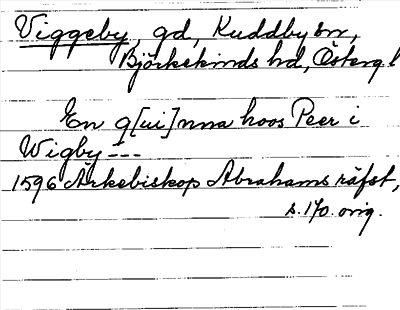 Viggeby, gd, Kuddby sn,
Björkekinds hd, Österg l
En q[ui]nna hoos Peer i
Wigby ---
1596 Ärkebiskop Abrahams räfst,
s. 170. orig.